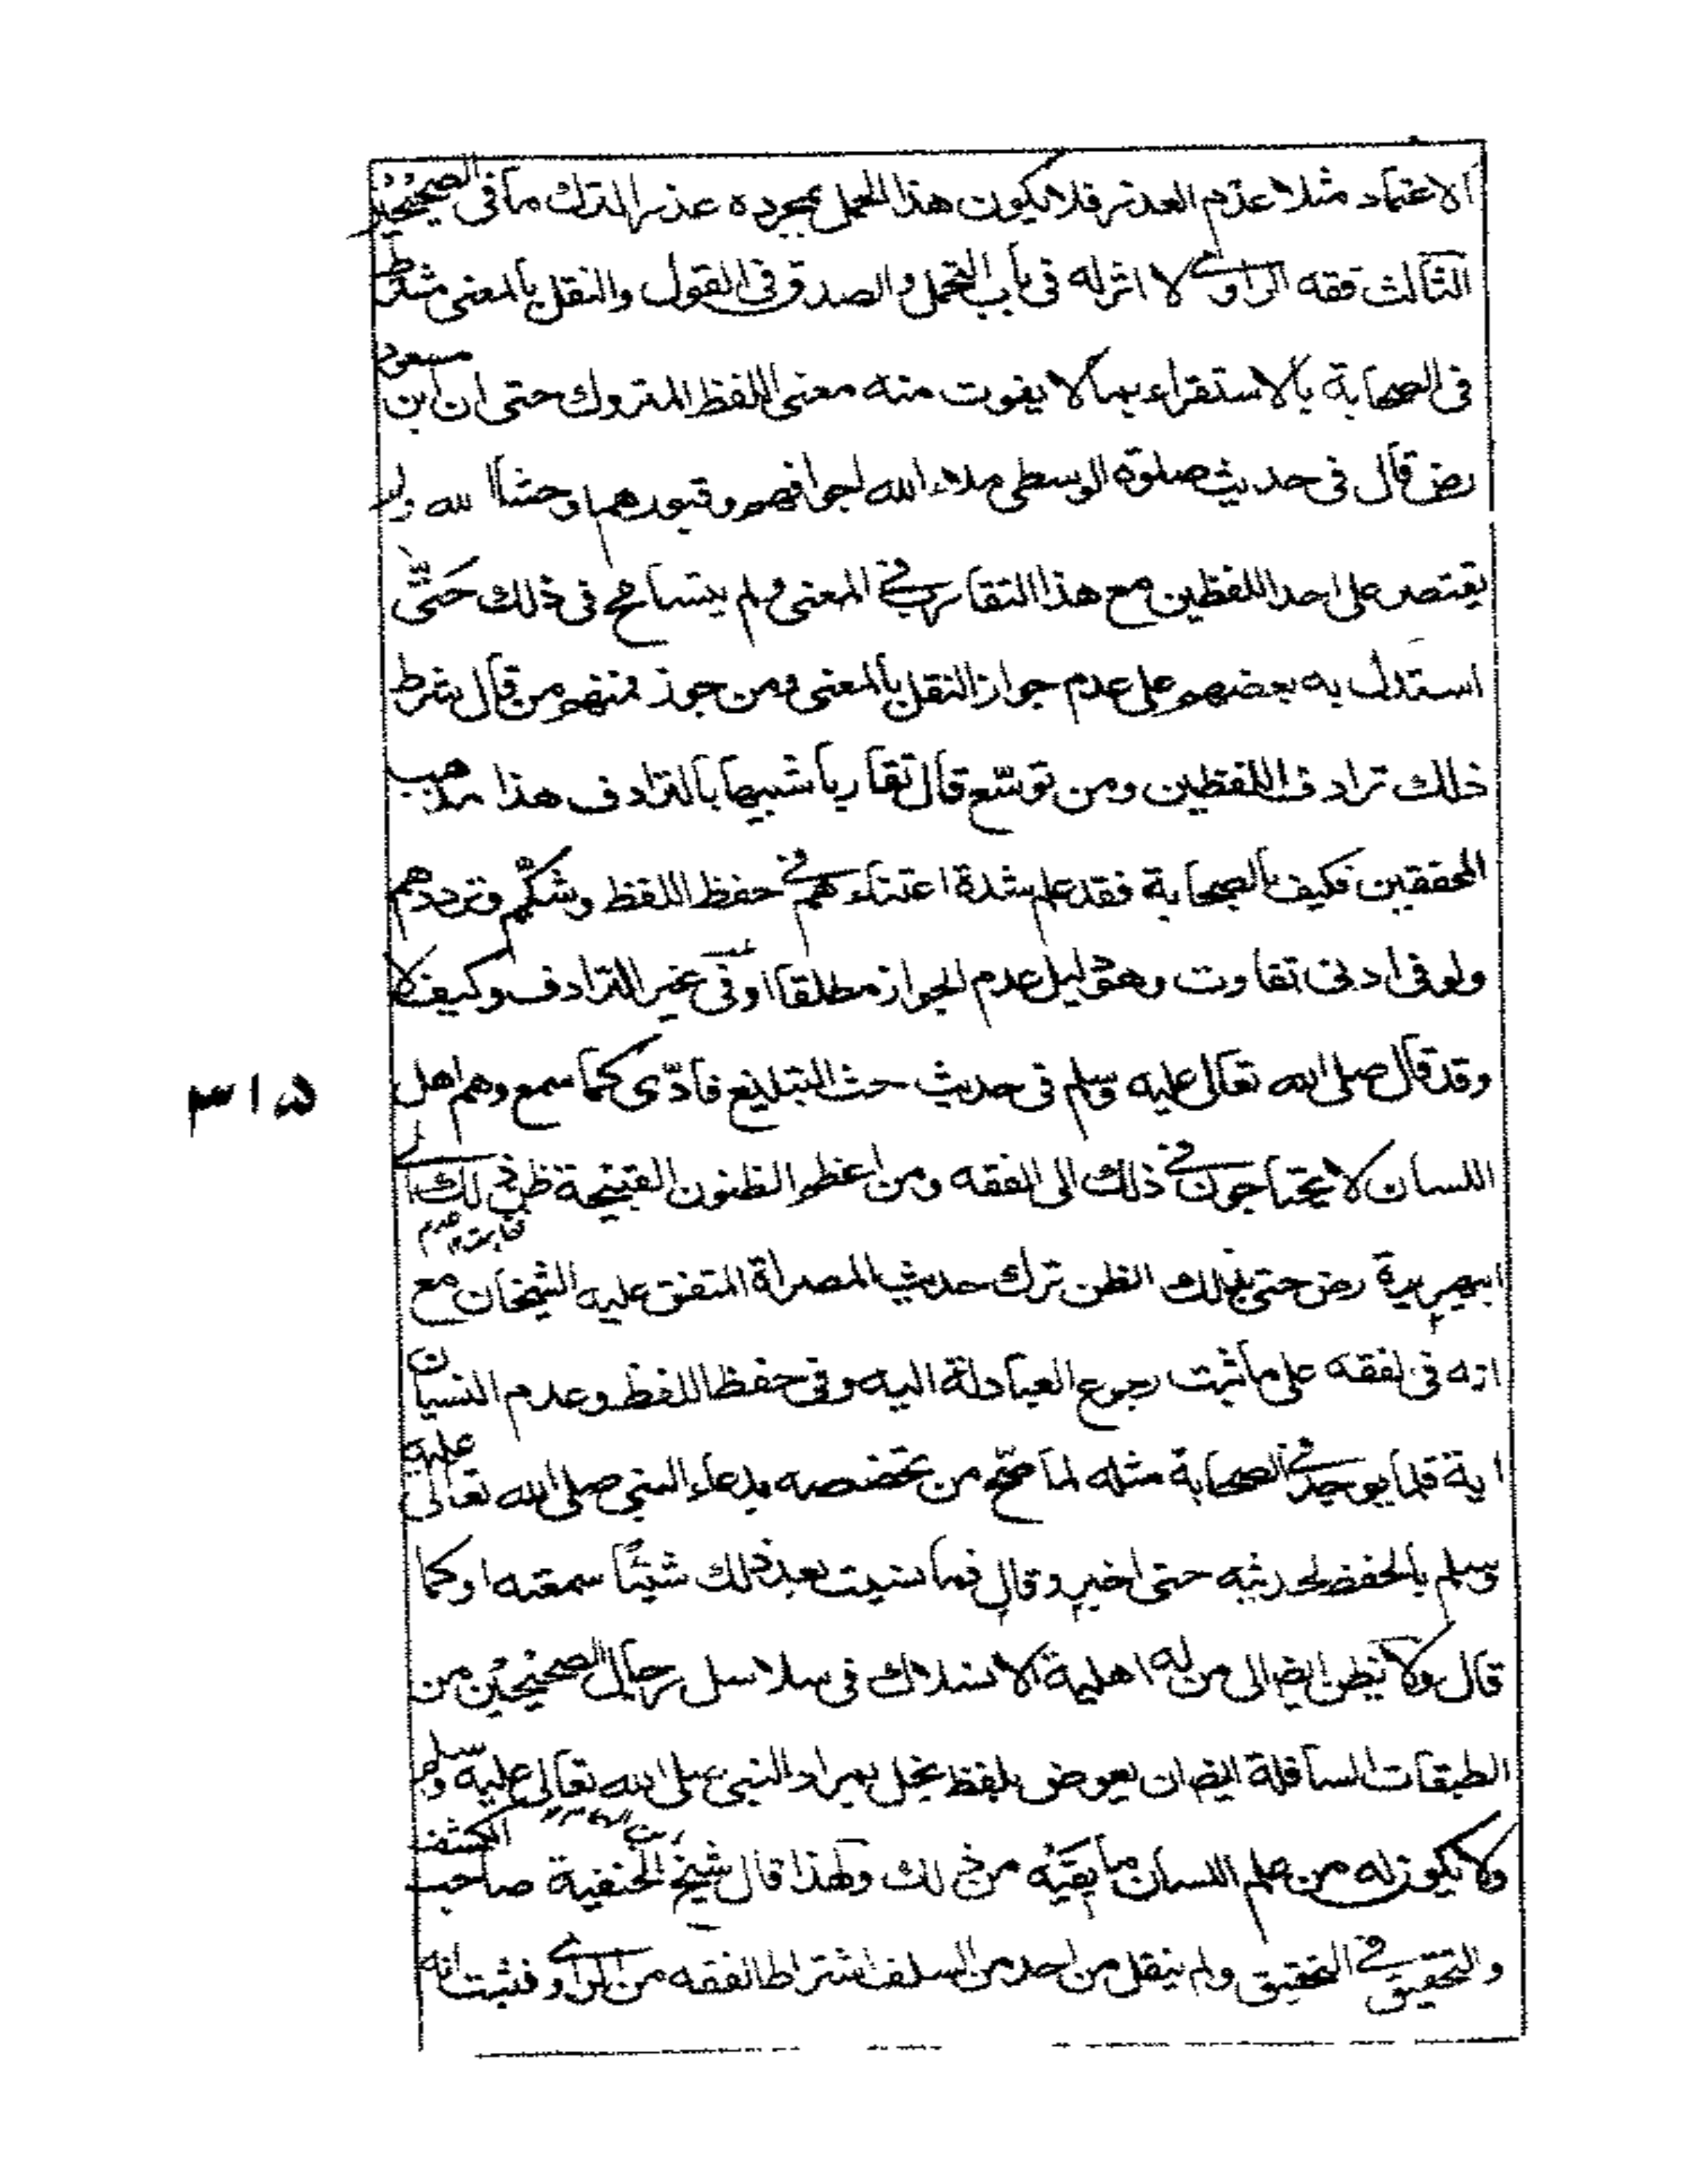 الاعتماد مثلا عدم العذر فلا يكون هذا المحمل بمجرده عذر الترك ما فى الصحيحين
الثالث فقه الراوى لا اثر له فى باب التحمل والصدق فى القول والنقل بالمعنى مشرط
فى الصحابة بالاستقراء بما لا يفوت منه معنى اللفظ المتروك حتى ان ابن مسعود
رض قال فى حديث صلوة الوسطى ملاء الله اجوافهم وقبورهم او حشا الله ولم
يقتصر على احد اللفظين مع هذا التقارب فى المعنى ولم يتسامح فى ذلك حتى
استدل به بعضهم على عدم جواز النقل بالمعنى ومن جوز فمنهم من قال شرط
ذلك ترادف اللفظين ومن توسّع قال تقاربا شبيها بالترادف هذا مذهب
المحققين فكيف بالصحابة فقد علم شدة اعتناءهم فى حفظ اللفظ وشكهم وترددهم
ولو فى ادنى تفاوت وهو دليل عدم الجواز مطلقا او فى غير الترادف وكيف لا
وقد قال صلى الله تعالى عليه وسلم فى حديث حث التبليغ فادّى كما سمع وهم اهل
اللسان لا يحتاجون فى ذلك الى الفقه ومن اعظم الظنون القبيحة ظن ذلك
ابيهريرة رض حتى بذلك الظن ترك حديث المصراة المتفق عليه الشيخان مع
٣١٥
انه فى الفقه على ما ثبت رجوع العبادلة اليه وفى حفظ اللفظ وعدم النسيان
اية قلما يوجد فى الصحابة مثله لما صحّ من تخصصه بدعاء النبى صلى الله تعالى عليه
وسلم بالحفظ لحديثه حتى اخبر وقال فما نسيت بعد ذلك شيئا سمعته او كما
قال ولا نظن ايضا الى من له اهلية الانسلاك فى سلاسل رجال الصحيحين من
الطبقات السافلة ايضا ان يعوض بلفظ يخل بمراد النبى صلى الله تعالى عليه وسلم
ولا يكون له من علم اللسان ما يقيه من ذلك ولهذا قال شيخ الحنفية صاحب الكشف
والتحقيق فى التحقيق ولم ينقل من احد من السلف اشتراط الفقه من الراوى فثبت انه